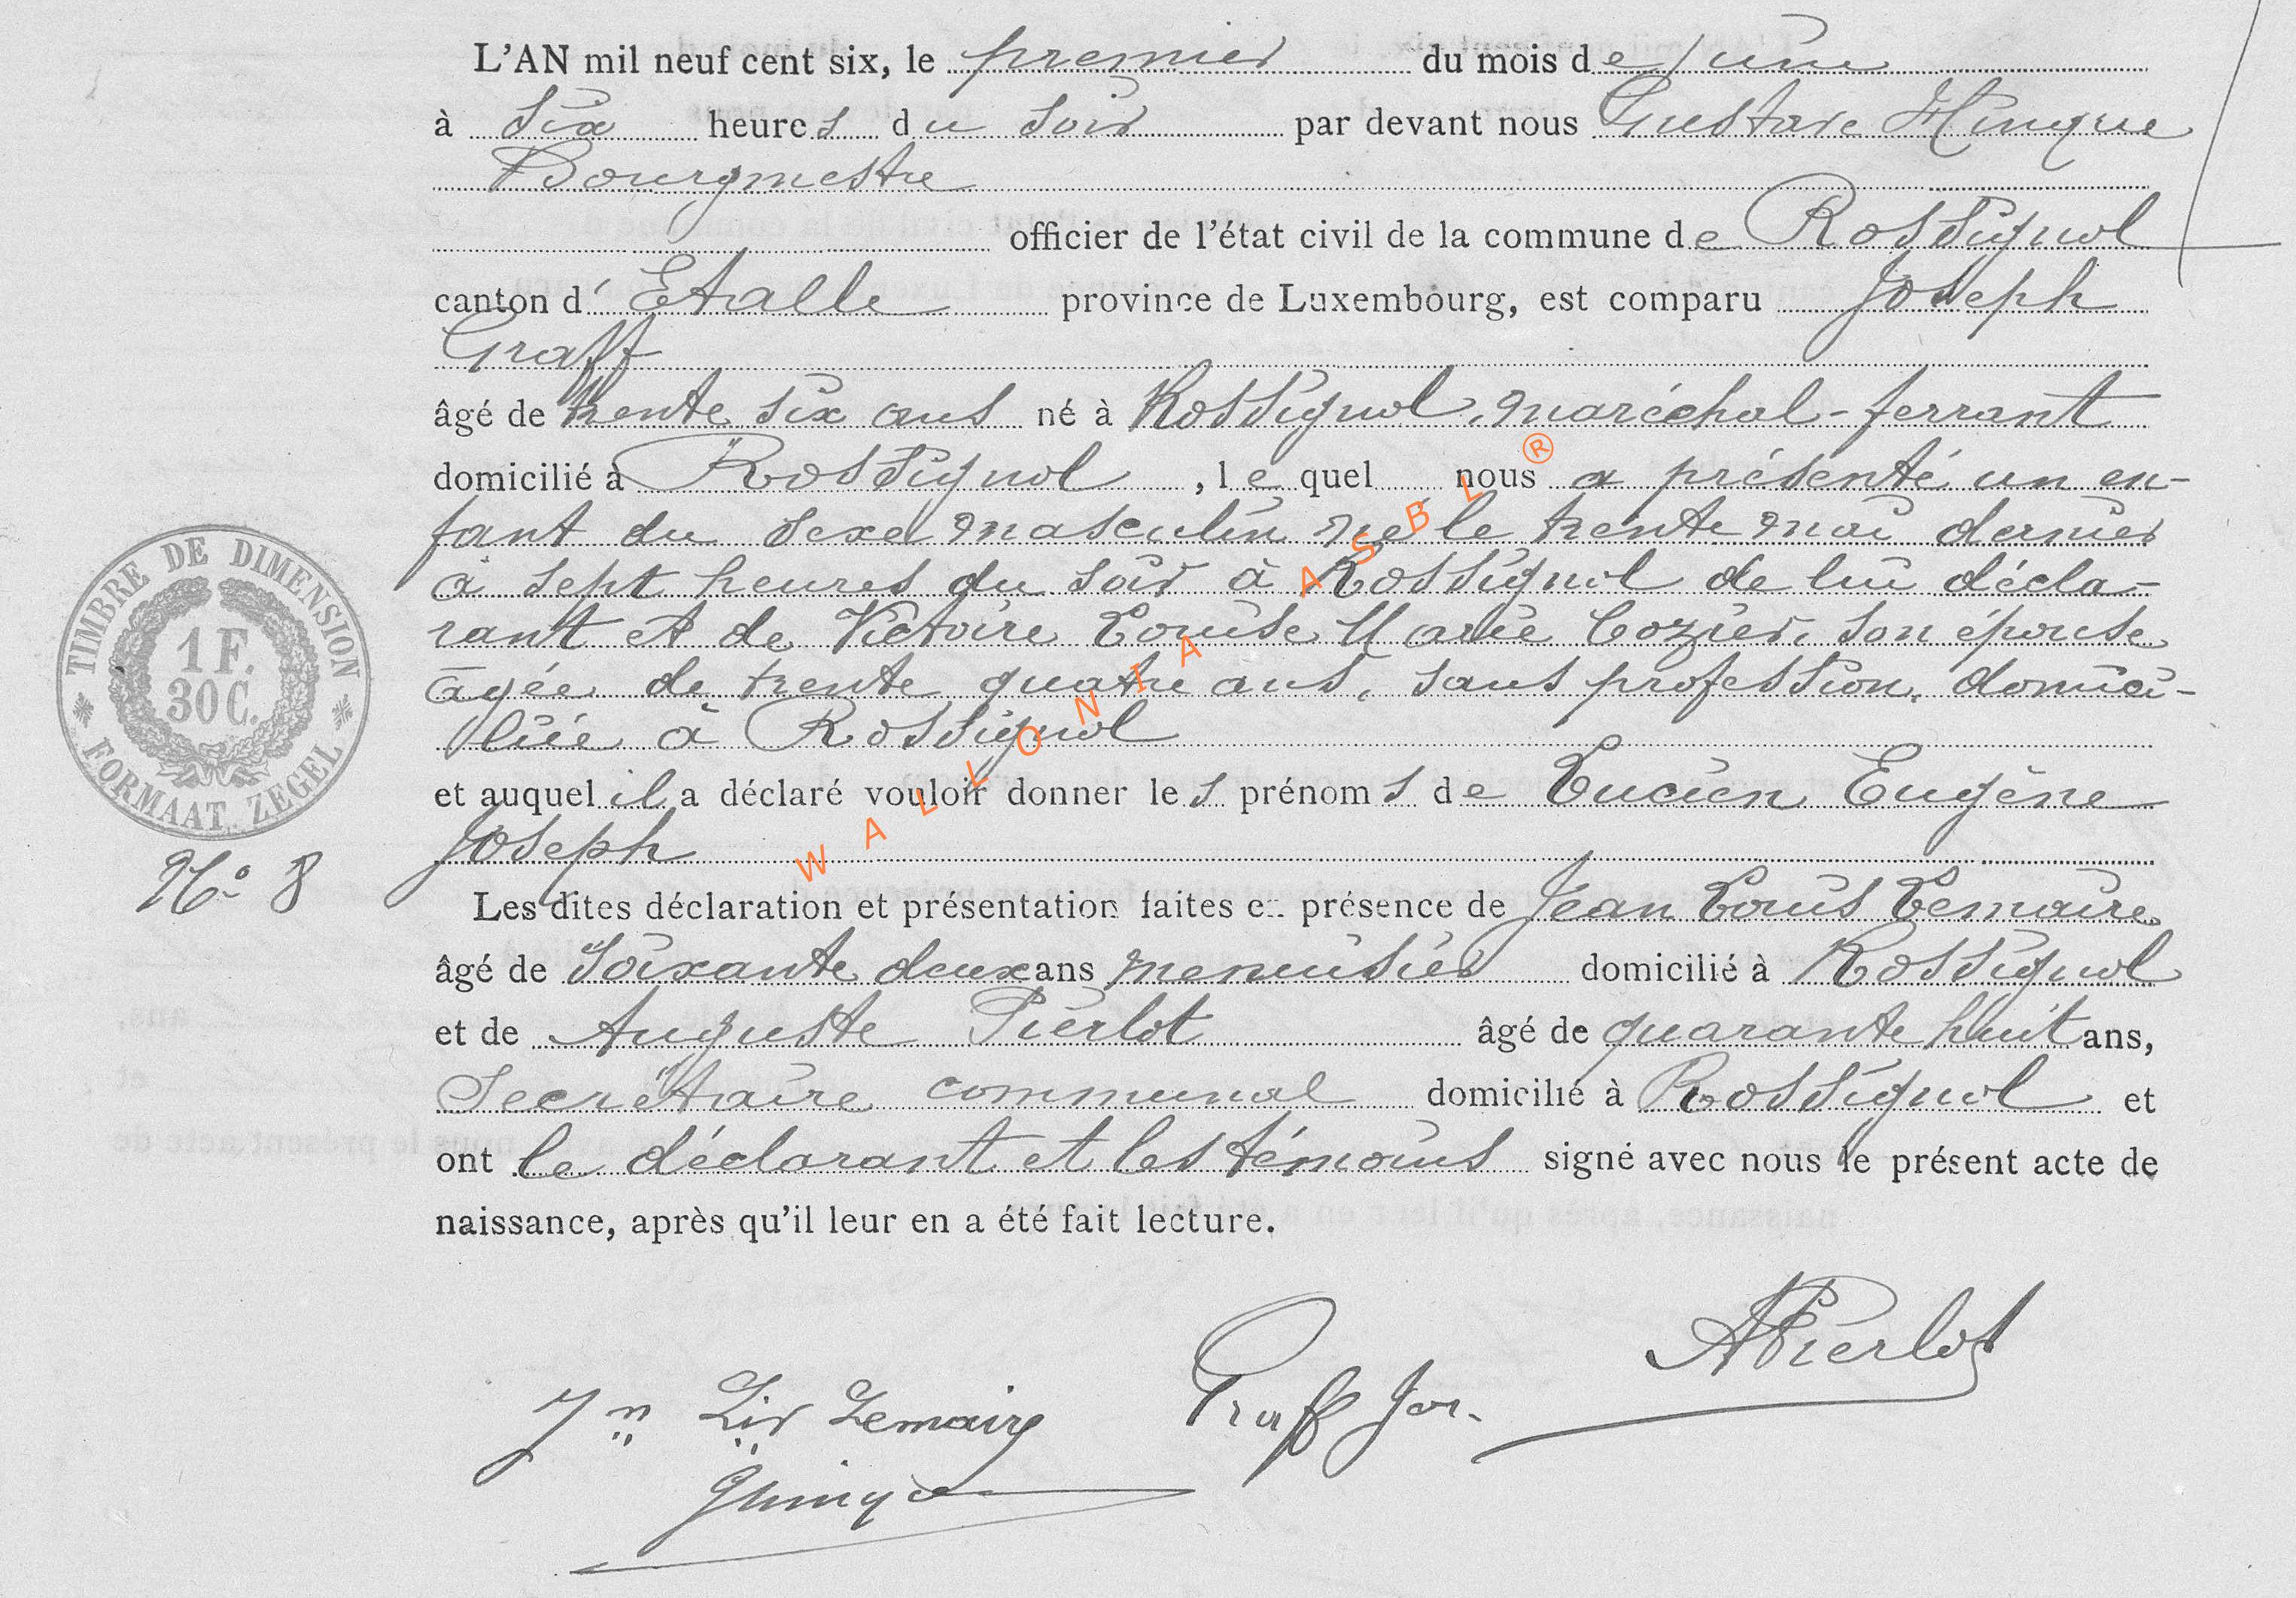 L'AN mil neuf cent six, le premier du mois de juin
à six heures du soir par devant nous Gustave Hinque
Bourgmestre
officier de l'état civil de la commune de Rossignol
canton d' Etalle province de Luxembourg, est comparu Joseph
Graff
âgé de trente six ans né à Rossignol, maréchal-ferrant
domicilié à Rossignol, lequel nous a présenté un en-
fant du sexe masculin né le trente mai dernier
à sept heures du soir à Rossignol de lui décla-
rant et de Victoire Louise Marie Cozier, son épouse
âgée de trente quatre ans, sans profession, domici-
liée à Rossignol
et auquel il a déclaré vouloir donner les prénoms de Lucien Eugène
Joseph
Les dites déclaration et présentation faites en présence de Jean Louis Lemaire
âgé de soixante deux ans menuisier domicilié à Rossignol
et de Auguste Pierlot âgé de quarante huit ans,
Secrétaire communal domicilié à Rossignol et
ont le déclarant et les témoins signé avec nous le présent acte de
naissance, après qu'il leur en a été fait lecture.
TIMBRE DE DIMENSION
1 F.
30 C.
FORMAAT ZEGEL
No 8
WALLONIA ASBL ®
APierlot
Jn Lis Lemaire Graff Jos.
GHinque